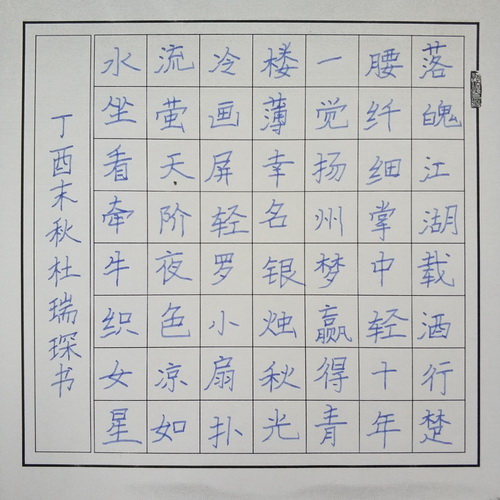 落魄江湖载酒行楚
腰纤细掌中轻十年
一觉扬州梦赢得青
楼薄幸名银烛秋光
冷画屏轻罗小扇扑
流萤天阶夜色凉如
水坐看牵牛织女星
丁酉末秋杜瑞琛书